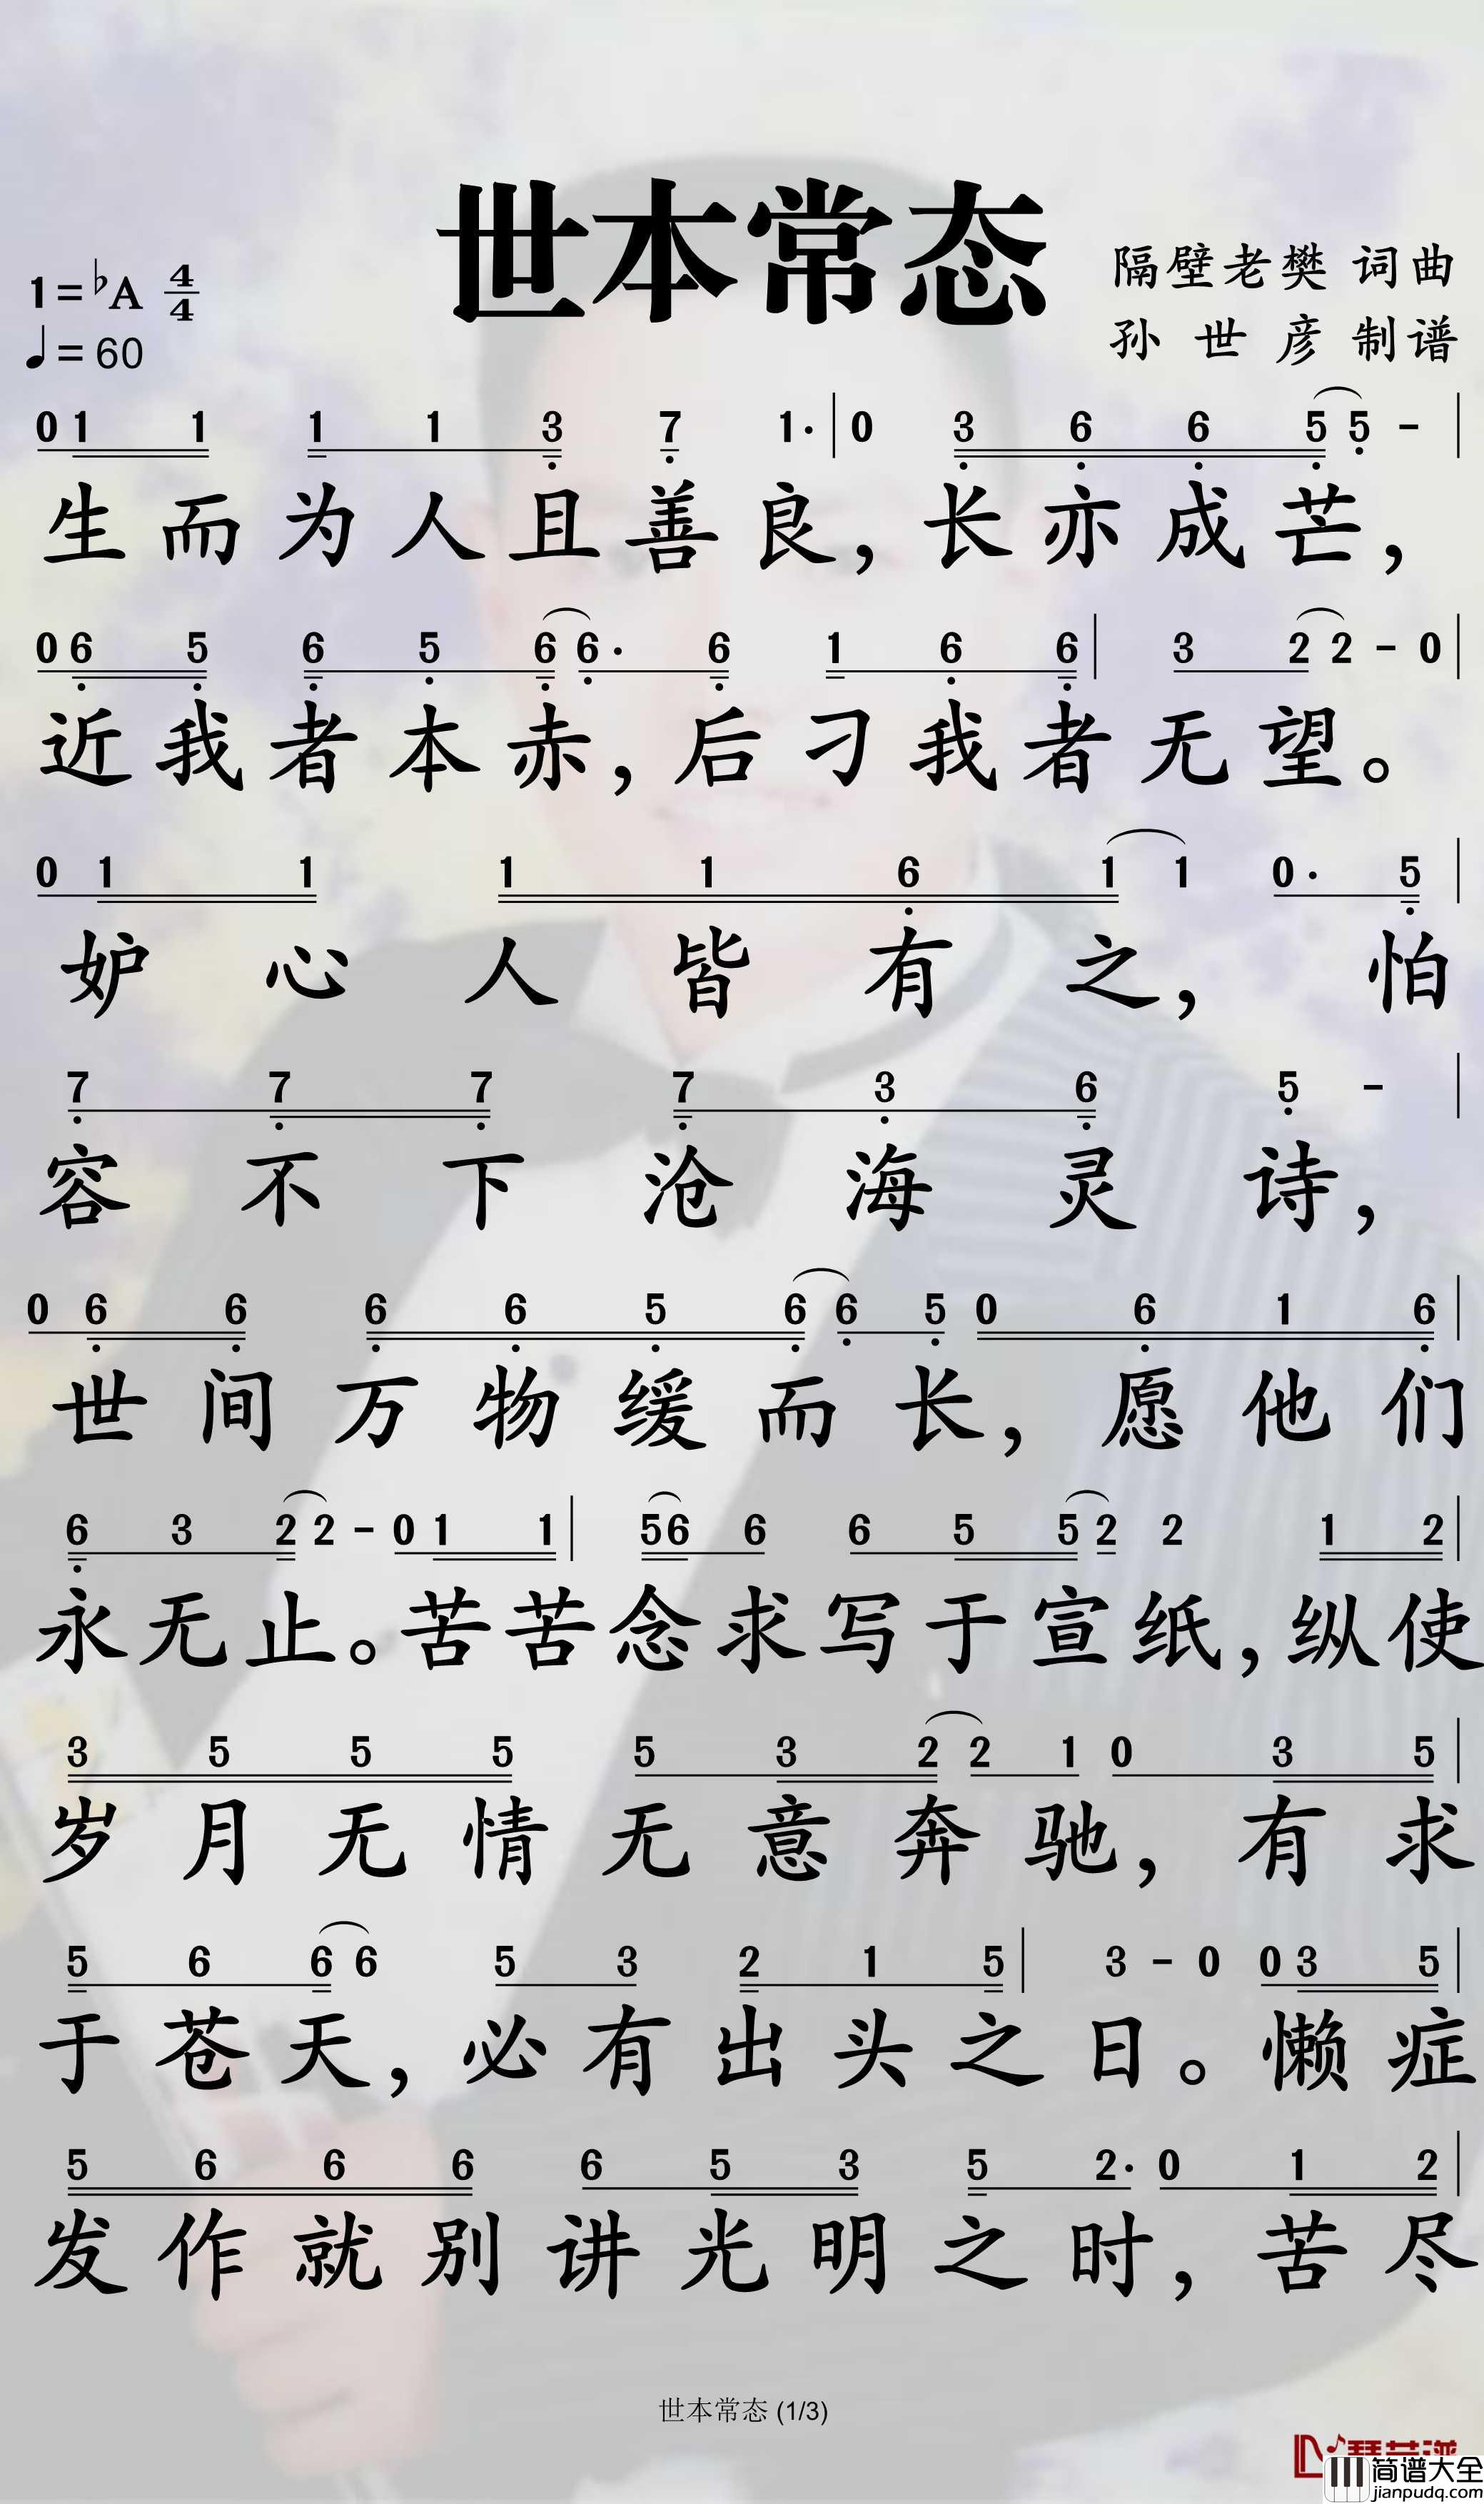 世本常态
1=♭A 4/4
♩=60
隔壁老樊 词曲
孙世彦 制谱
0 1 1 1 1 3 7 1· | 0 3 6 6 5 5 - |
生而为人且善良,长亦成芒,
0 6 5 6 5 6 6· 6 1 6 6 | 3 2 2 - 0 |
近我者本赤,后刁我者无望。
0 1 1 1 1 6 1 1 0· 5 |
妒心人皆有之,怕
7 7 7 7 3 6 5 - |
容不下沧海灵诗,
0 6 6 6 6 5 6 6 5 0 6 1 6 |
世间万物缓而长,愿他们
6 3 2 2 - 0 1 1 | 5 6 6 6 5 5 2 2 1 2 |
永无止。苦苦念求写于宣纸,纵使
3 5 5 5 5 3 2 2 1 0 3 5 |
岁月无情无意奔驰,有求
5 6 6 6 5 3 2 1 5 | 3 - 0 0 3 5 |
于苍天,必有出头之日。懒症
5 6 6 6 6 5 3 5 2· 0 1 2 |
发作就别讲光明之时,苦尽
世本常态 (1/3)
简谱大全
jianpudq.com